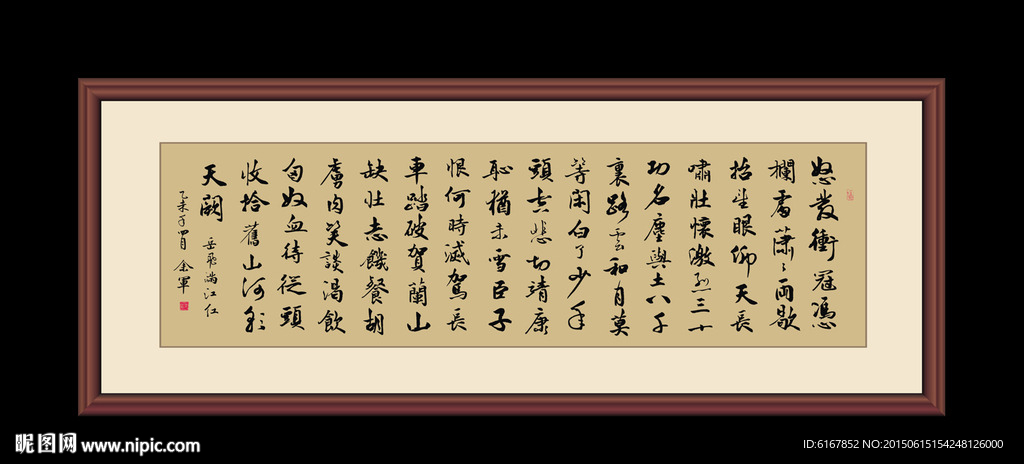 怒发衝冠憑
欄處萧ミ雨歇
抬望眼仰天長
嘯壮懷激烈三十
功名塵與土八千
裏路雲和月莫
等闲白了少年
頭空悲切靖康
恥猶未雪臣子
恨何時滅駕長
車踏破賀蘭山
缺壮志饑餐胡
虜肉笑談渴飲
匈奴血待從頭
收拾舊山河朝
天闕
岳飛满江红
金軍
昵图网 www.nipic.com
ID:6167852 NO:20150615154248126000